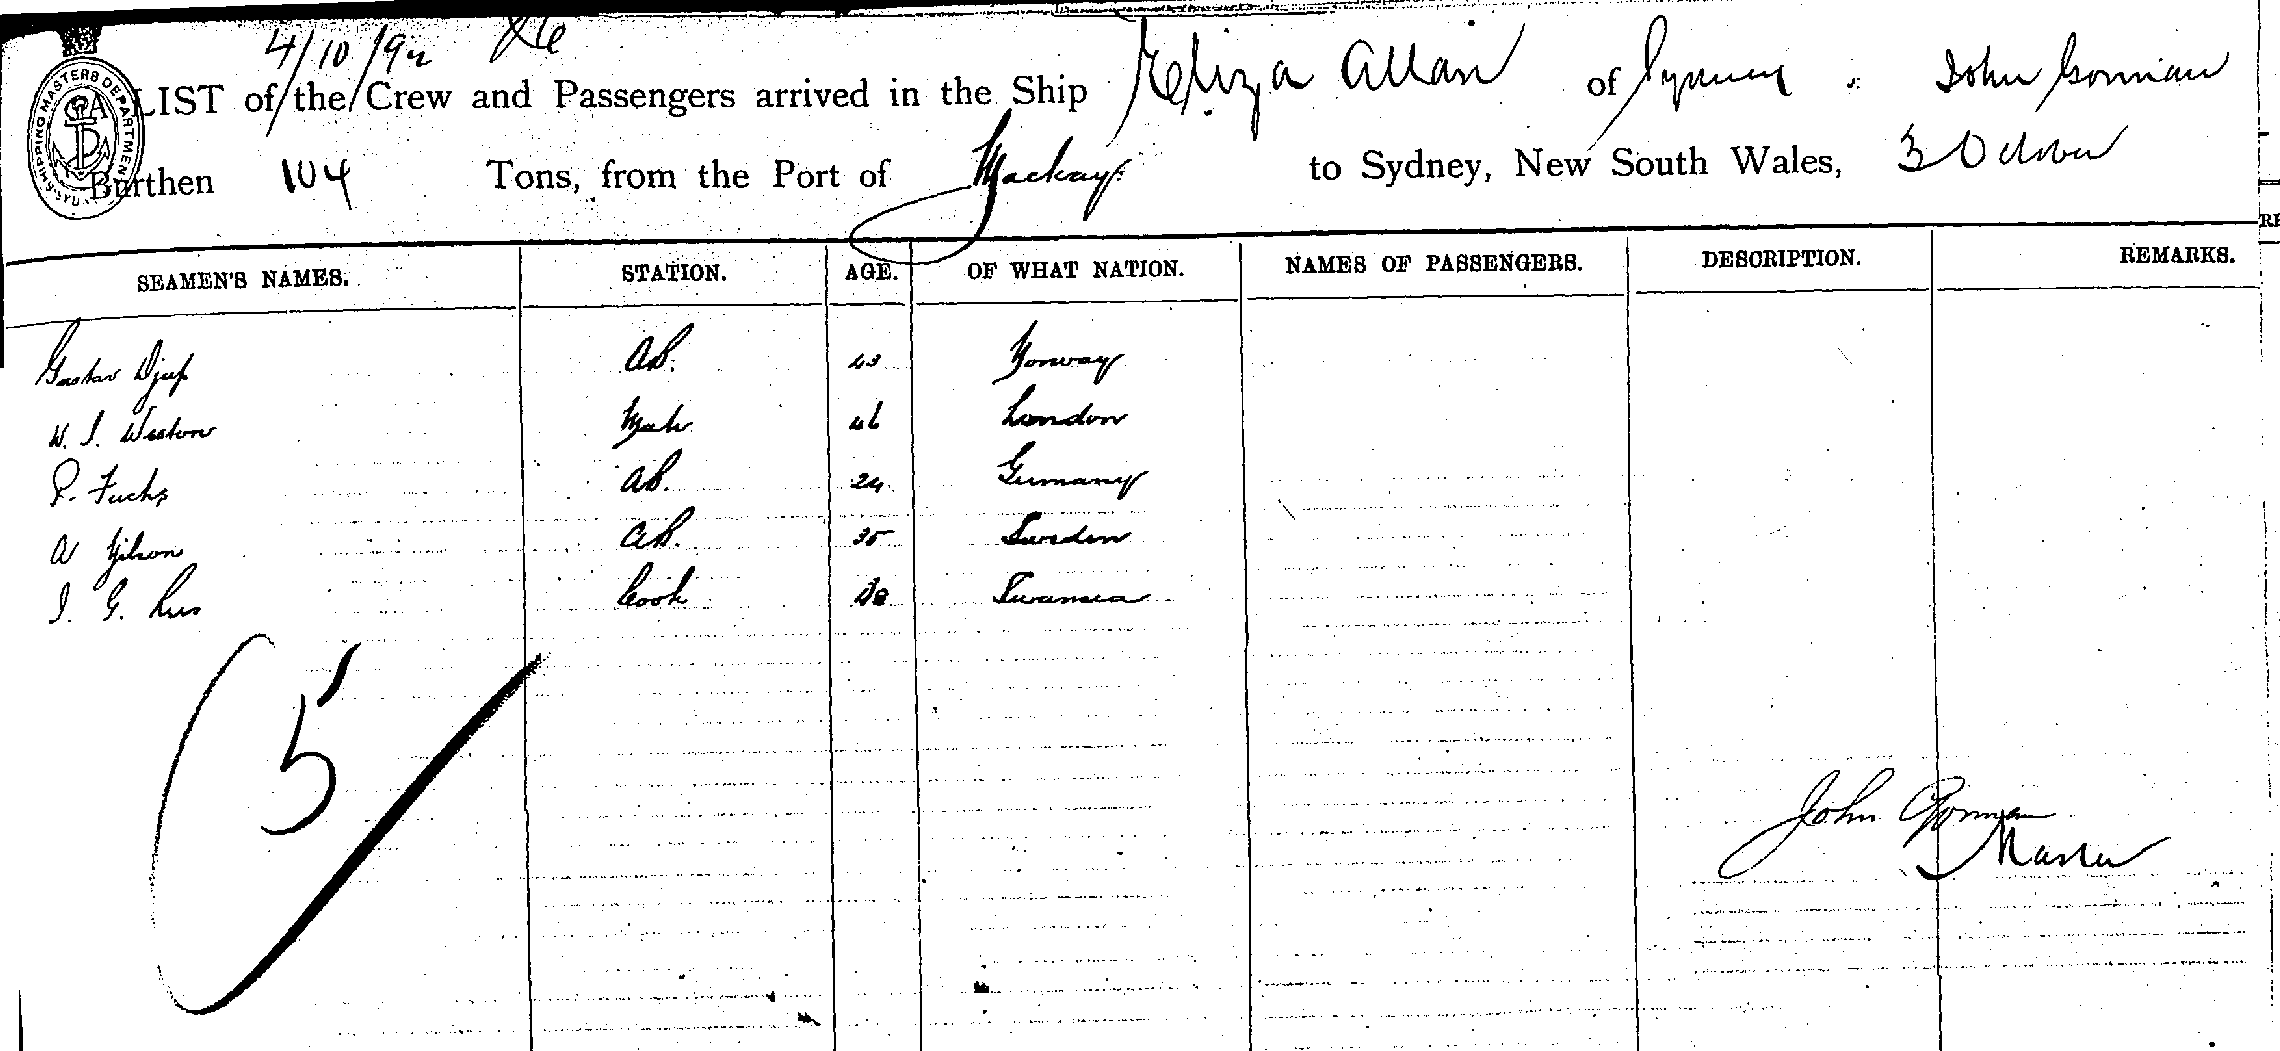 4/10/92
A LIST of the Crew and Passengers arrived in the Ship Eliza Allan of Sydney John Gorman
Burthen 104 Tons, from the Port of Mackay to Sydney, New South Wales, 3 October
SEAMEN'S NAMES. STATION. AGE. OF WHAT NATION. NAMES OF PASSENGERS. DESCRIPTION. REMARKS.
Gustav Djup AB. 43 Norway
W. J. Weston Mate 46 London
P. Fuchs AB. 24 Germany
A Nilson AB. 35 Sweden
J. G. Rees Cook Swansea
5
John Gorman
Master
SHIPPING MASTERS DEPARTMENT